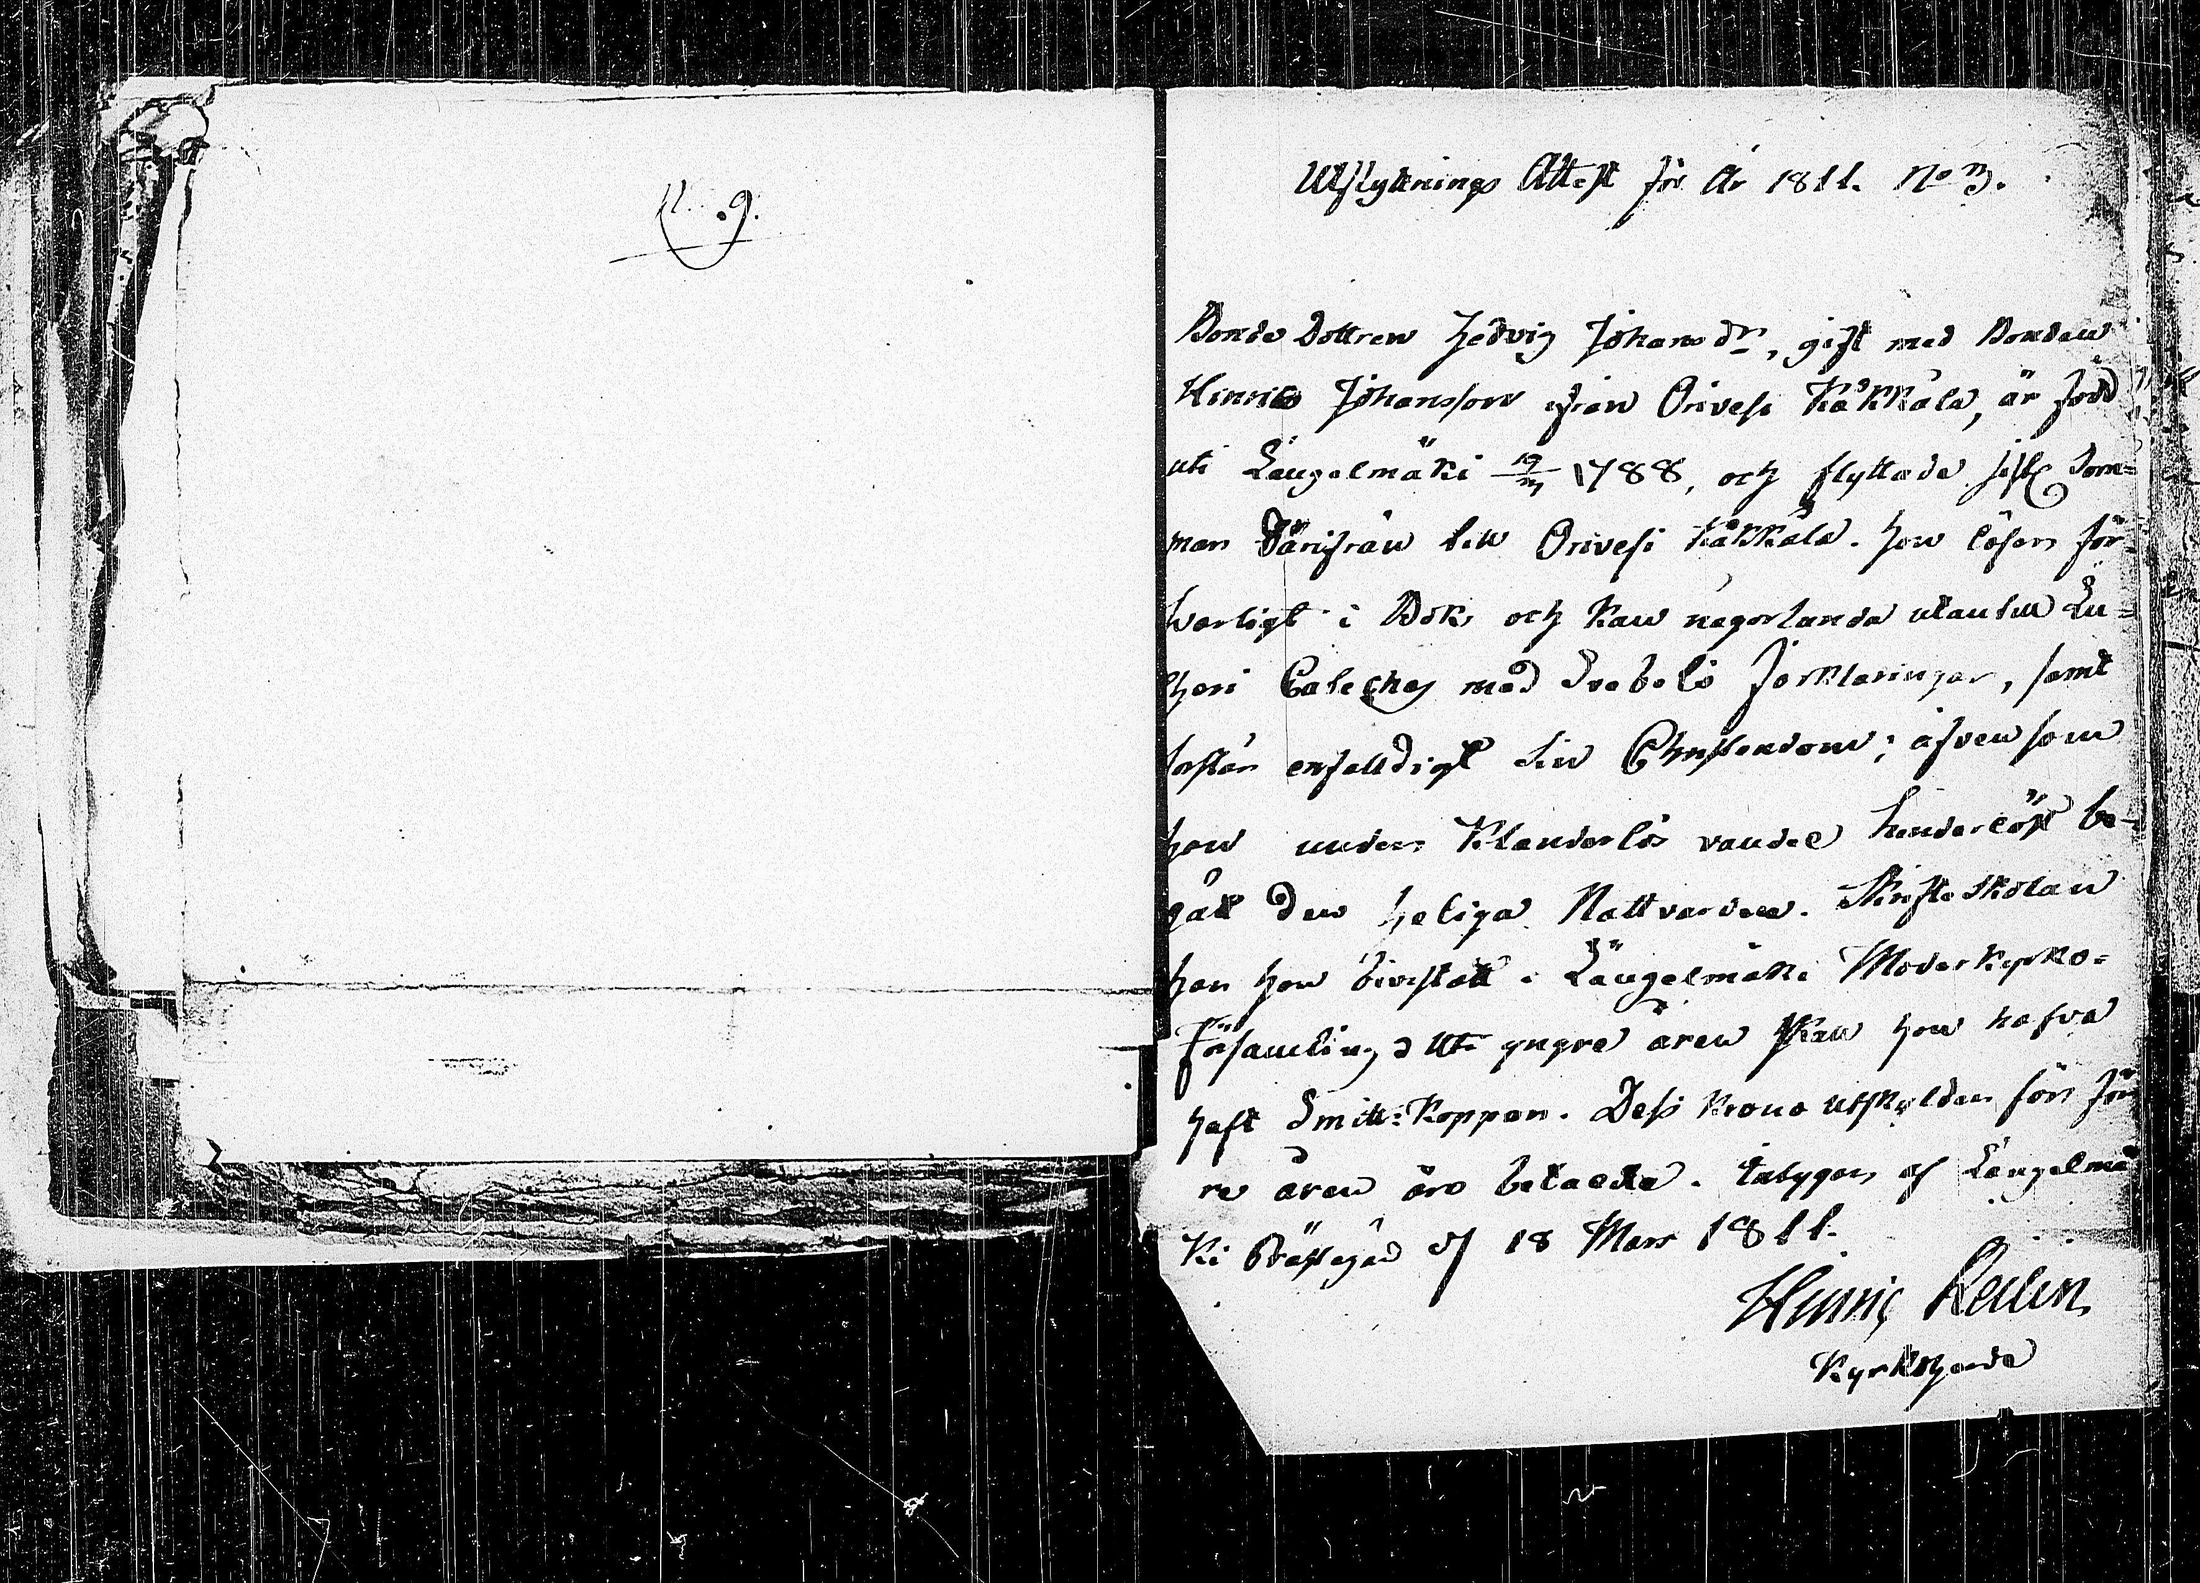 N. 9.
Utflyttnings Attest för År 1811. No 3.
Bonde Dottren Hedvig Johansdr, gift med Bonden
Hinric Johansson ifrån Orivesi Kåkkåla, är född
uti Längelmäki 19/3 1788, och flyttade sistl Som=
mar härifrån till Orivesi Kåkkåla. Hon läser för=
svarligt i Bok och kan någorlunda utantill Lu=
theri Cateches med Svebelii Förklaringar, samt
förstår enfalldigt sin Christendom; äfven som
hon under Klanderlös vandel hinderlöst be=
gått den heliga Nattvarden. Skrifteskolan
har hon bivistatt i Längelmäki Moderkyrko=
Församling; Uti yngre åren skall hon hafva
haft Smitt=Koppor. Dess krono utskylder för för
re åren äro betalda. Intygar af Längelmä
Ki Prästegård d 18 Mars 1811.
Hinric Relin,
Kyrkoherde